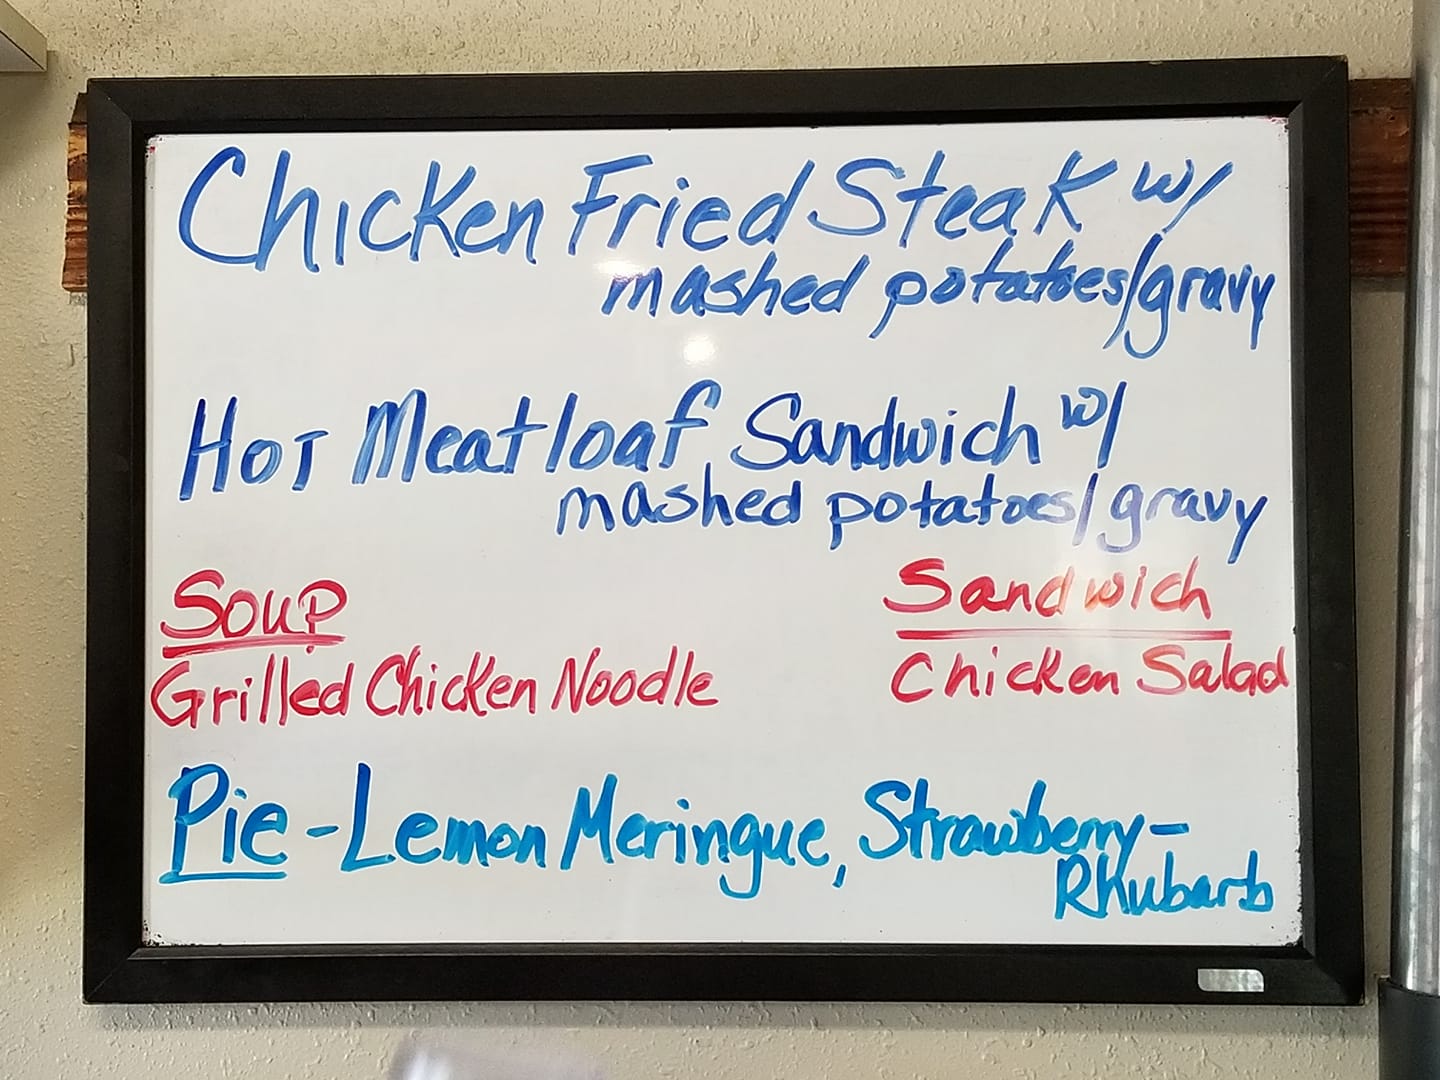 Chicken Fried Steak w/
mashed potatoes/gravy
Hot Meatloaf Sandwich w/
mashed potatoes/gravy
Soup
Grilled Chicken Noodle
Sandwich
Chicken Salad
Pie - Lemon Meringue, Strawberry-
Rhubarb